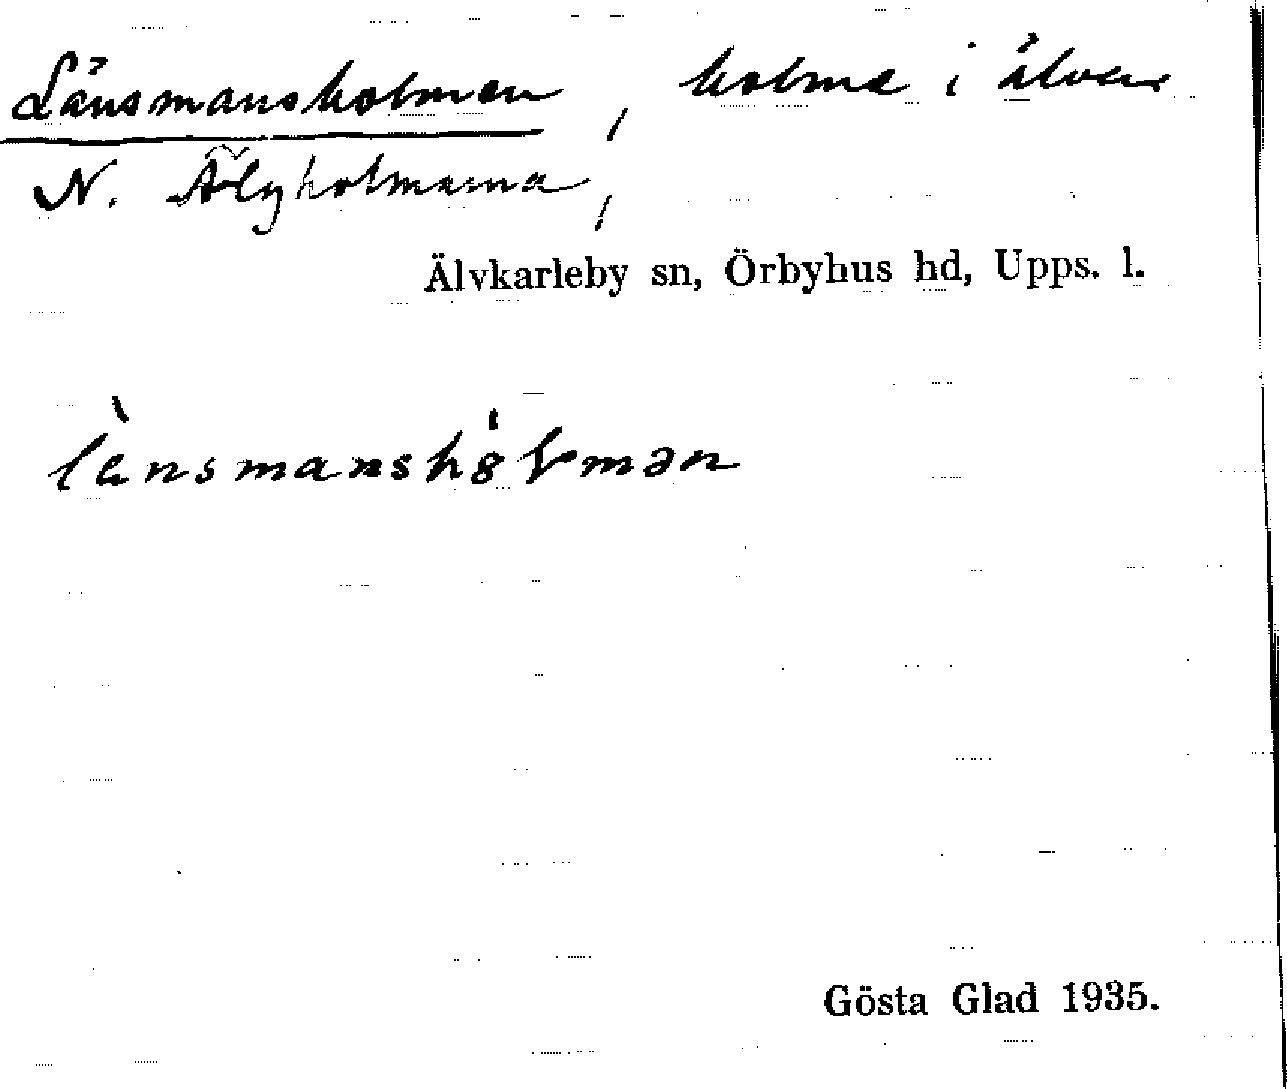 Länsmansholmen, holme i älven
N. Älgholmarna,
Älvkarleby sn, Örbyhus hd, Upps. l.
Gösta Glad 1935.